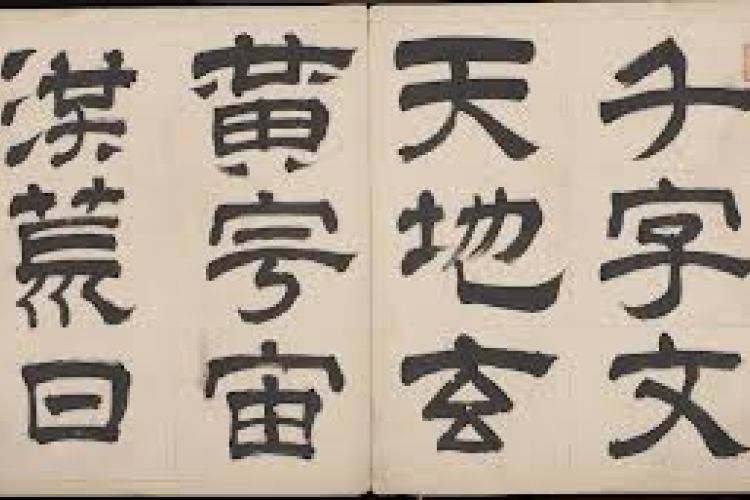 千字文
天地玄
黄宇宙
洪荒日